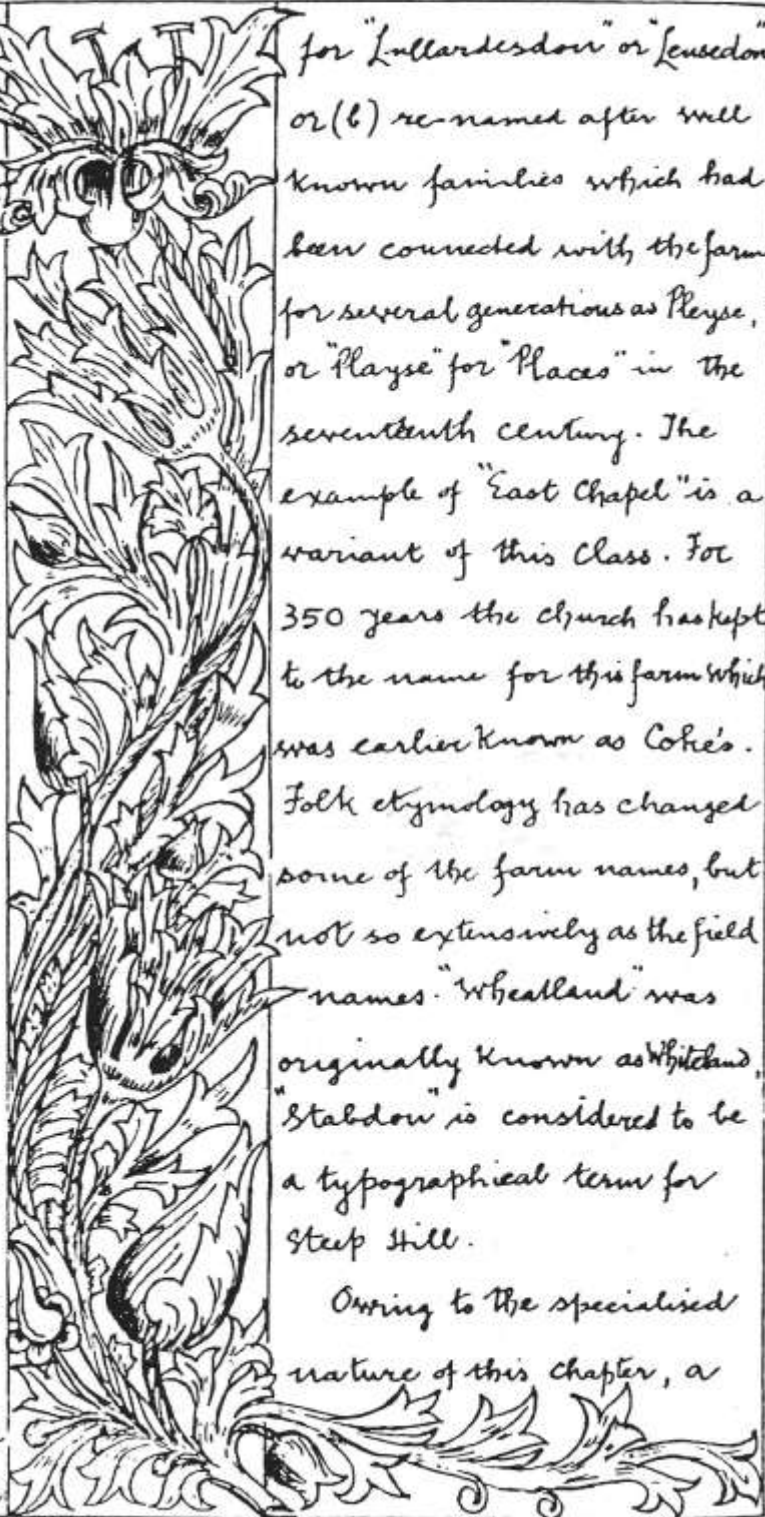 for "Lullardesdon" or "Leusedon"
or (b) re-named after well
known families which had
been connected with the farm
for several generations as Pleyse,
or "Playse" for "Places" in the
seventeenth century. The
example of "East Chapel" is a
variant of this class. For
350 years the church has kept
to the name for this farm which
was earlier known as Coke's.
Folk etymology has changed
some of the farm names, but
not so extensively as the field
names. "Wheatland" was
originally known as Whiteland,
"Stabdon" is considered to be
a typographical term for
Steep Hill.
Owing to the specialised
nature of this chapter, a